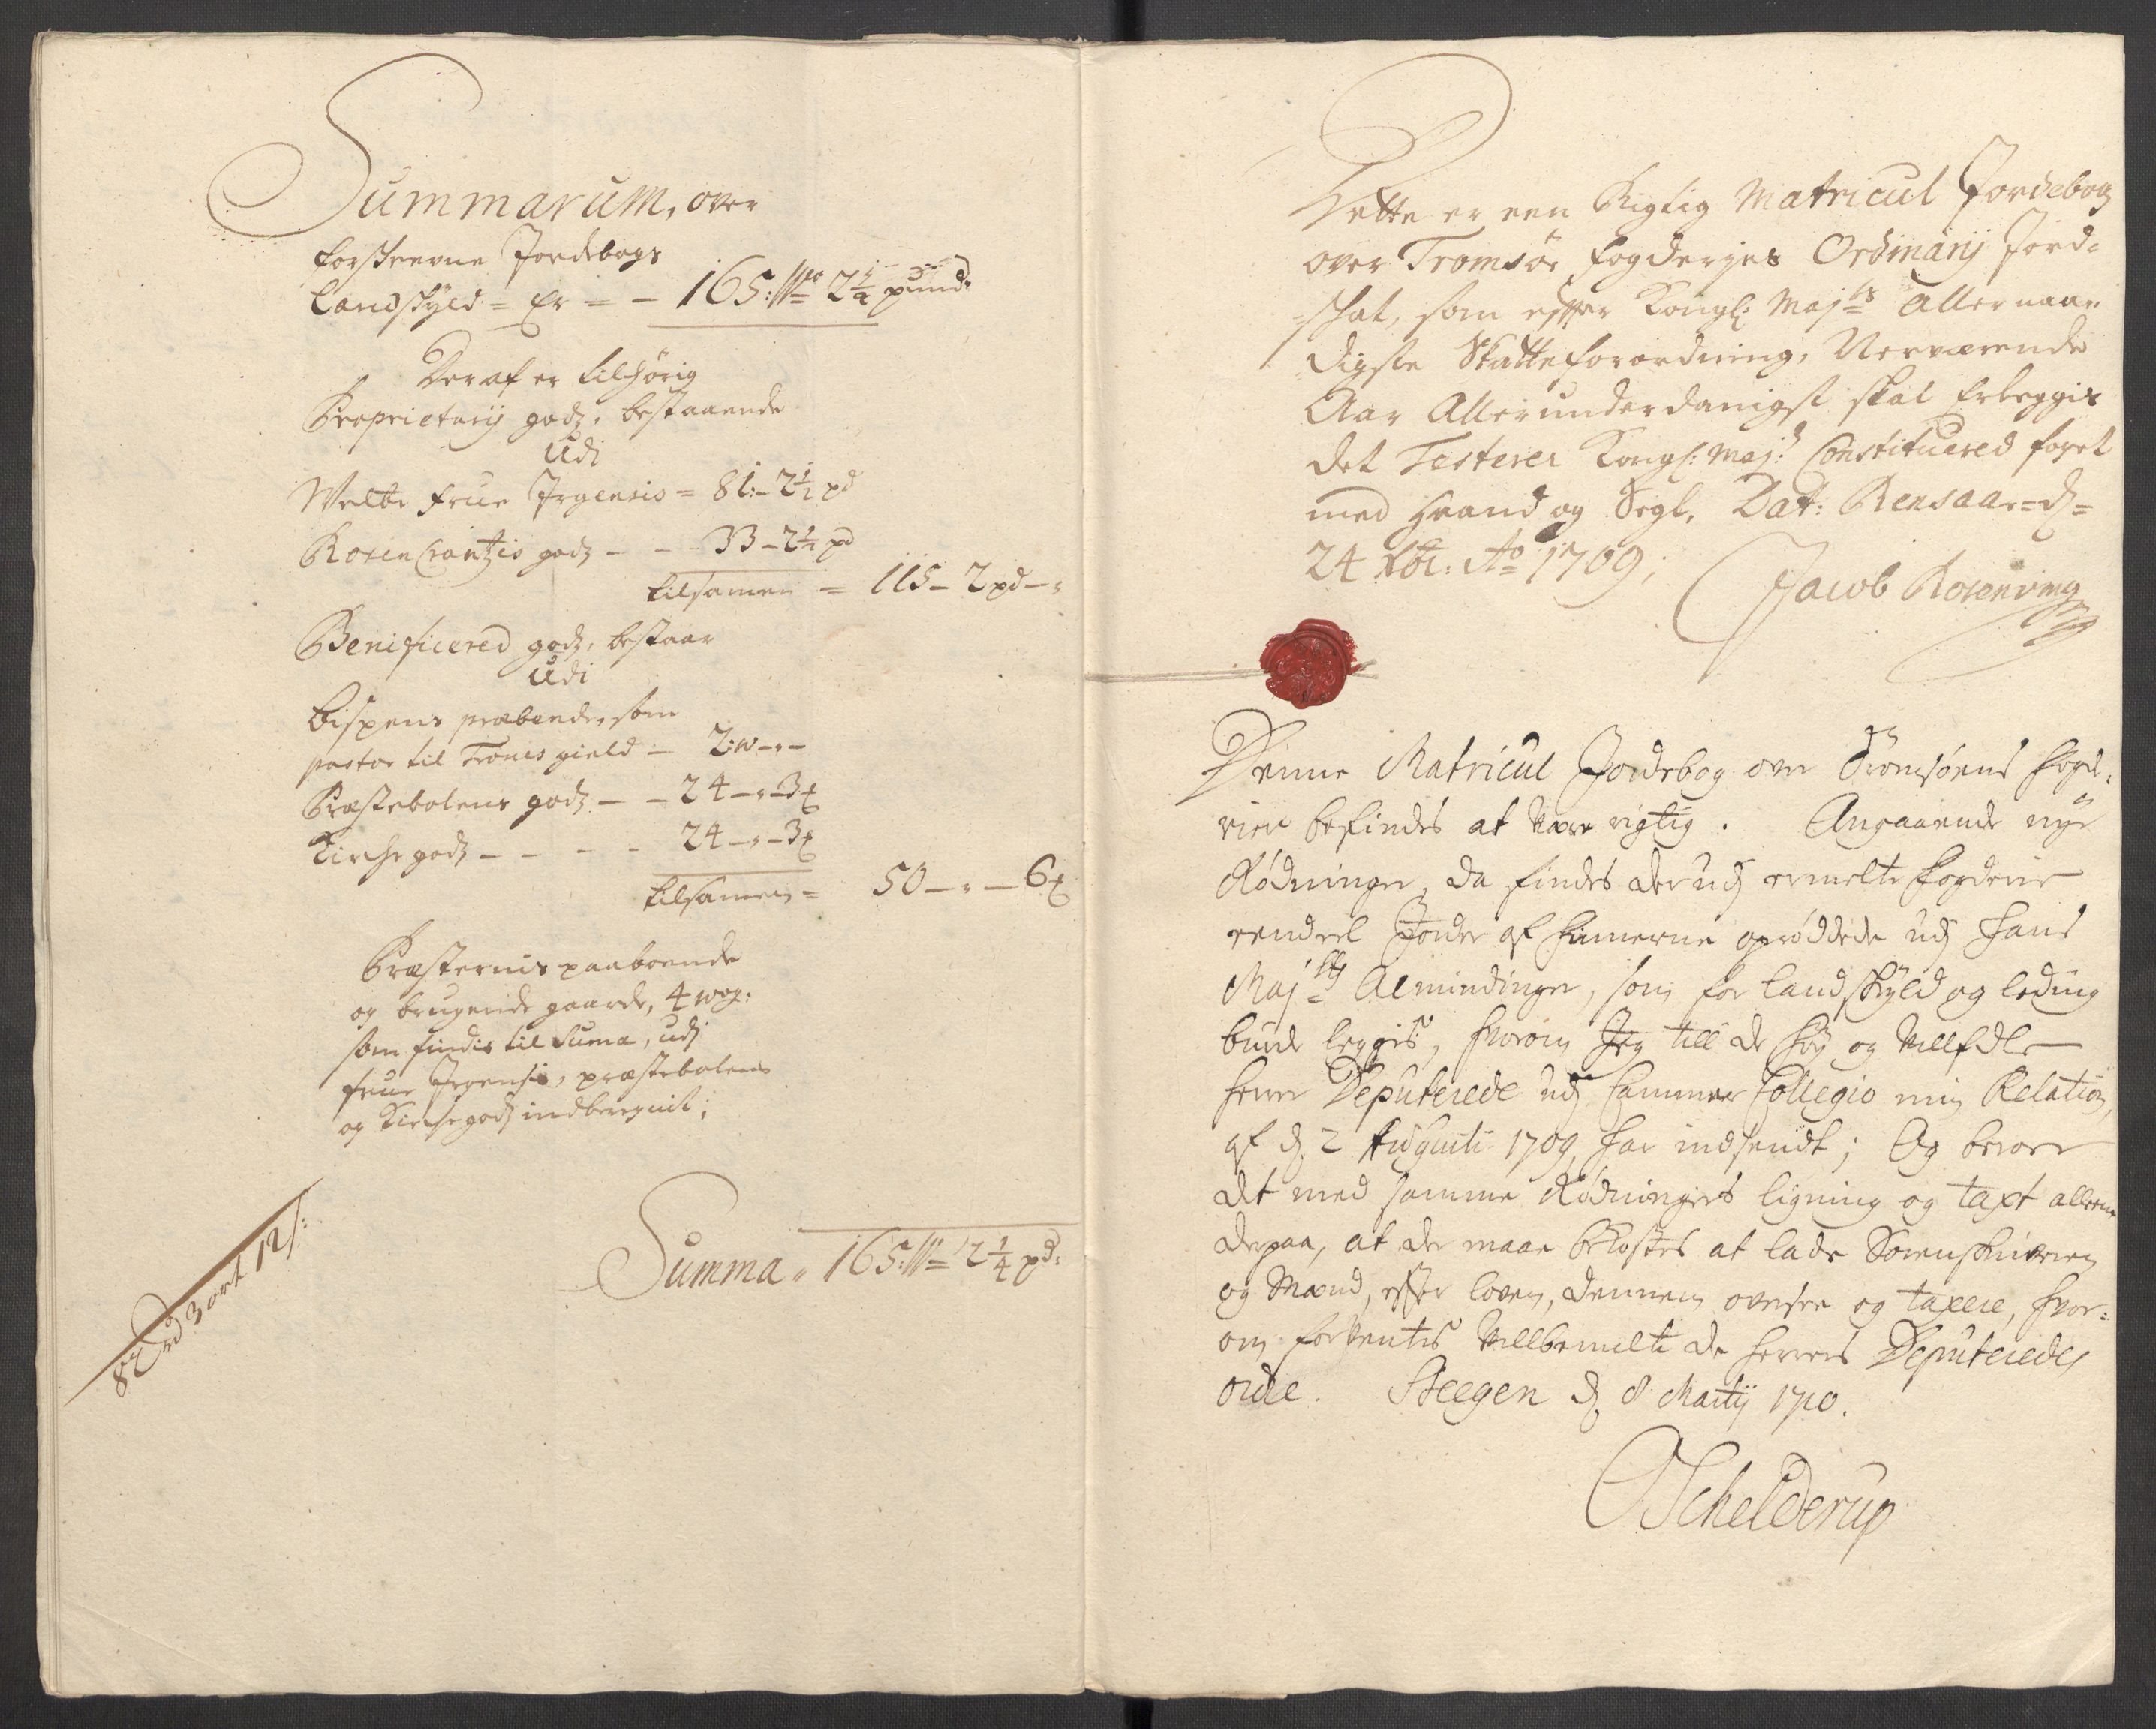 Summarum, over
forskrevne Jordebogs
Landskyld = Er = - 165: W 2 1/4 pund
Deraf er tilhørig
Proprietarij godz, bestaaende
Udi
Welbr frue Jrgensis = 81:- 2 1/2 pd
RosenCrantzis godz - - 33 - 2 1/2 pd
tilsamen = 115 - 2 pd -
Benificered godz, bestaar
Udi
Bispens præbende, som
pastor til Troms gield - 2: w - " -
Præstebolens godz - - 24 - " - 3
Kirche godz - - - - 24 - " - 3
tilsamen = 50 - " - 6
Præsternis paaboende
og brugende gaarde, 4 wog:
som findis til Suma, udj
frue Jrgensis, præstebolens
og Kirchegodz indberegnit;
Summa " 165: W 2 1/4 pd:
82 rd 3 ort 12 s:
Dette er een Rigtig Matricul Jordebog
over Tromsøe fogderjes Ordinarij Jord-
skat, som efter Kongl: Majts Allernaa-
digste Skatteforordning, Nerværende
Aar Allerunderdanigst skal Erleggis
det Testerer Kongl: Maj: Constituered foget
med Haand og Segl, Dat: Rensaae = d =
24 Xbr: Ao 1709;
Jacob Rosenving
Denne Matricul Jordebog over Tromsøens fogd-
rie befindes at være rigtig. Angaaende nye
Rødninger, da findes der udj ermelte fogderie
eendeel Jorder af finnerne oprøddede udj hans
Majts Almindinger, som for landskyld og leding
burde legges, hvorom Jeg till de høy og Velædle
herrer Deputerede udj Cammer Collegio min Relation,
af d. 2 Augusti 1709, har indsendt; Og beroer
det med samme Rødningers ligning og taxt alleene
derpaa, at der maae bekostes at lade Sorenskriveren
og Mænd, efter loven, dennem oversee og taxere, hvor-
om forventis Velbemelte de herrers Deputeredes
ordre. Steegen d. 8 Martij 1710.
OSchelderup